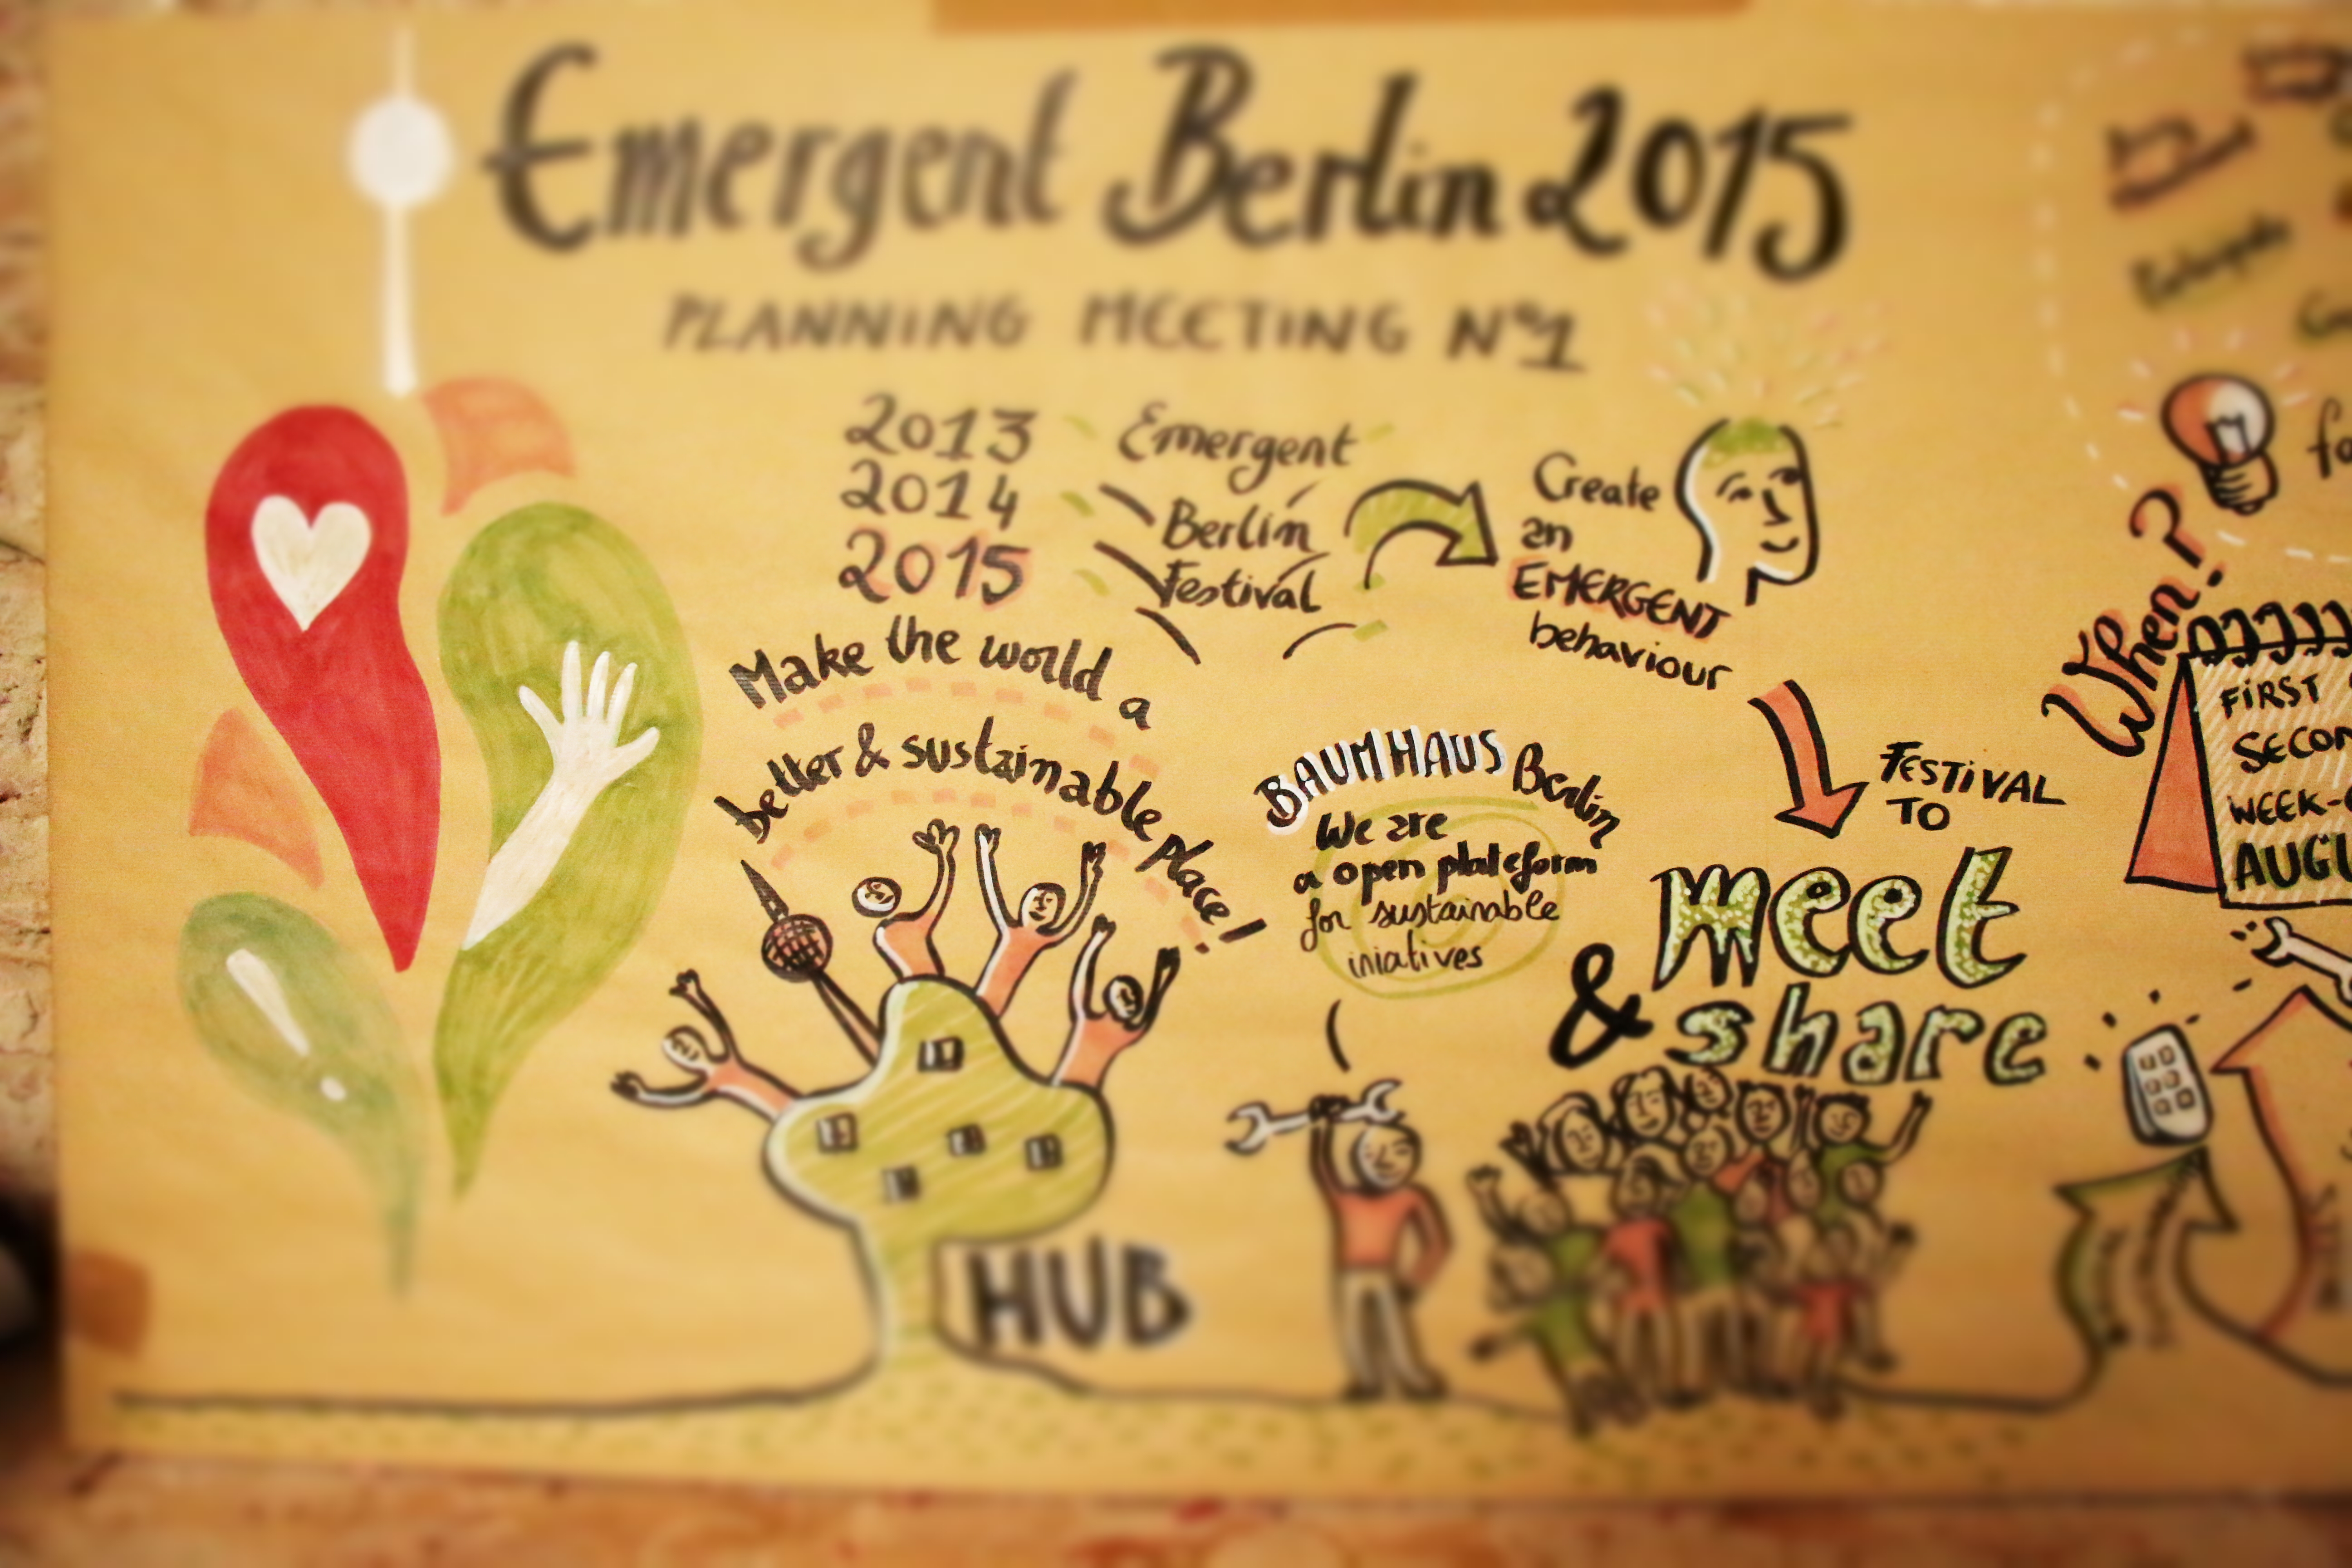 Emergent Berlin 2015
PLANNING MEETING Nº1
2013
2014
2015
Emergent
Berlin
Festival
Create
an
EMERGENT
behaviour
Make the world a
better & sustainable place!
BAUMHAUS Berlin
We are
a open plateform
for sustainable
iniatives
FESTIVAL
TO
meet
& share
HUB
When?
FIRST
WEEK-